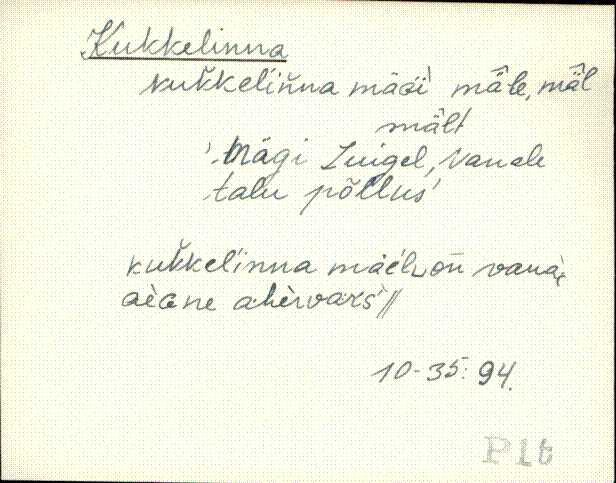 Kukkelinna
kukkelinna mäèi mäle, mäl
mält
'Mägi Luigel, Vanale
talu põllus'
kukkelinna mäel‿on vana
aeane ahervars //
10-35: 94.
Plt